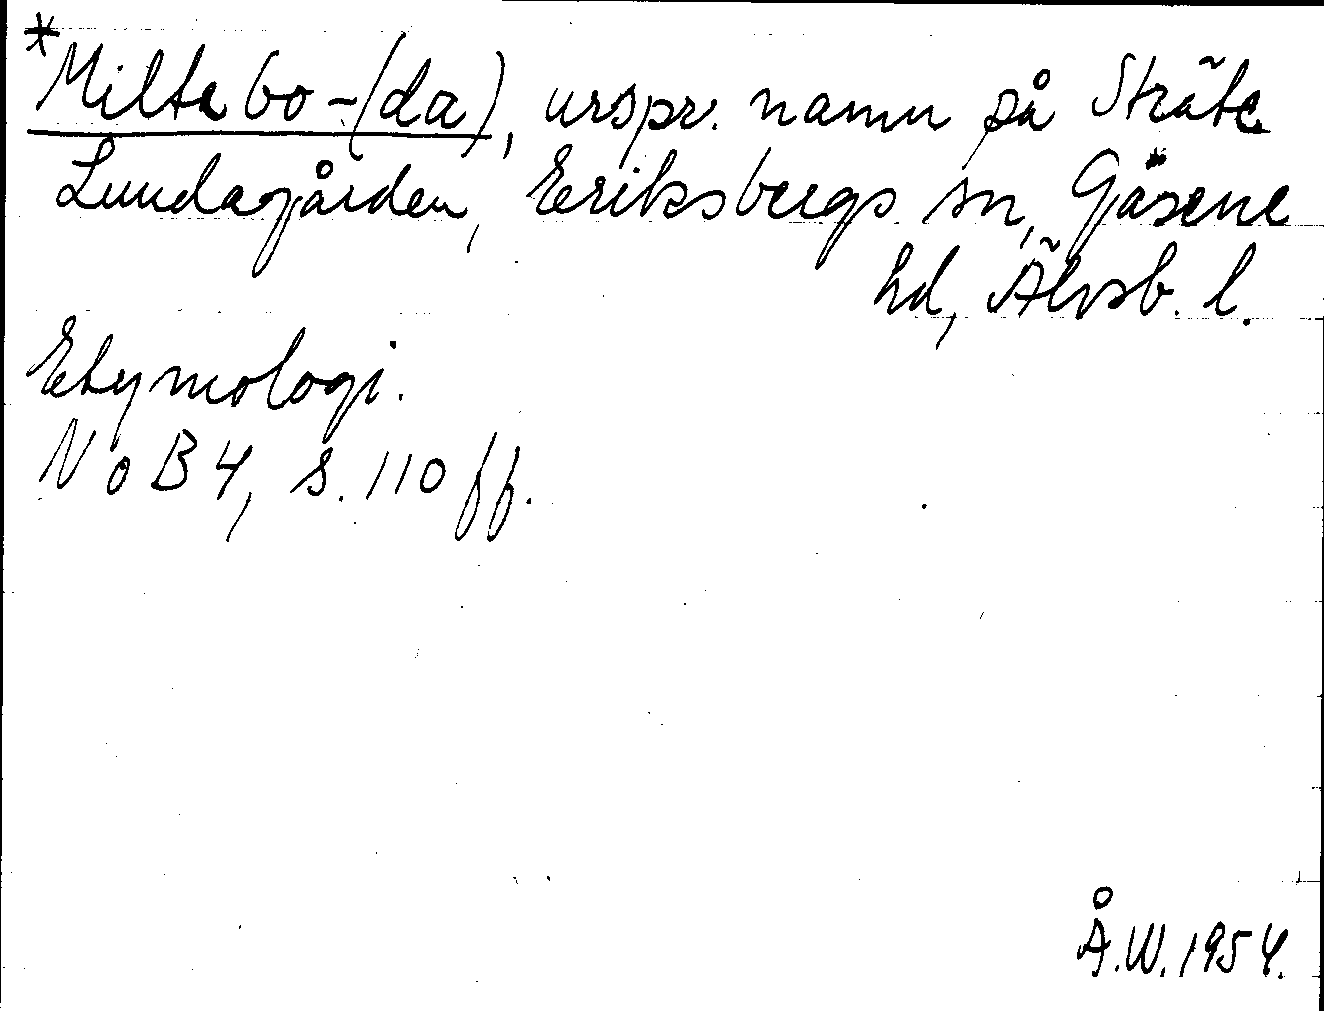 *Milte bo-(da), urspr. namn på Sträte
Lundagården, Eriksbergs sn, Gäsene
hd, Älvsb. l.
Etymologi.
NoB 4, s. 110 ff.
Å.W. 1954.